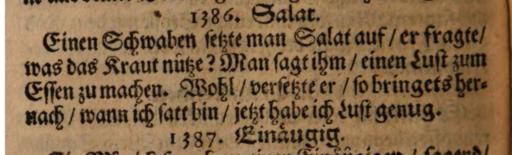 1386. Salat.
Einen Schwaben setzte man Salat auf / er fragte /
was das Kraut nütze? Man sagt ihm / einen Lust zum
Essen zu machen. Wohl / versetzte er / so bringets her-
nach / wann ich satt bin / jetzt habe ich Lust genug.
1387. Einäugig.